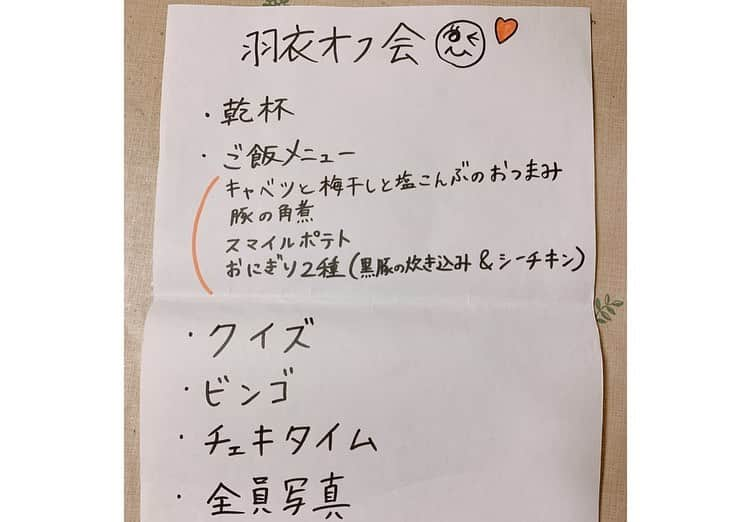 羽衣オフ会
・乾杯
・ご飯メニュー
キャベツと梅干しと塩こんぶのおつまみ
豚の角煮
スマイルポテト
おにぎり2種(黒豚の炊き込み&シーチキン)
・クイズ
・ビンゴ
・チェキタイム
・全員写真